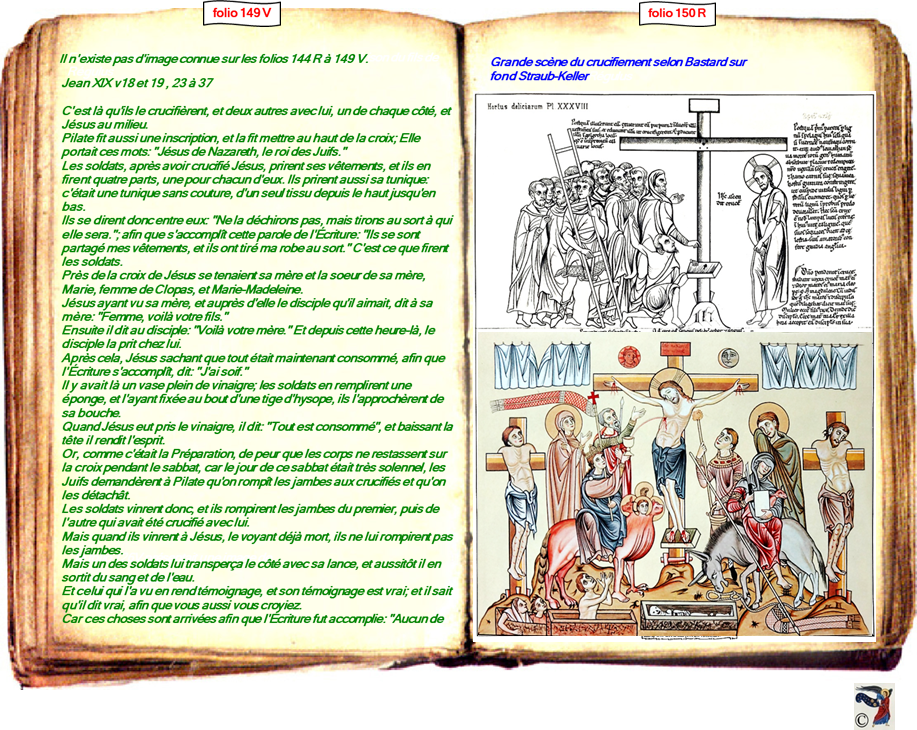 folio 149 V
Il n'existe pas d'image connue sur les folios 144 R à 149 V.
Jean XIX v18 et 19 , 23 à 37
C'est là qu'ils le crucifièrent, et deux autres avec lui, un de chaque côté, et
Jésus au milieu.
Pilate fit aussi une inscription, et la fit mettre au haut de la croix; Elle
portait ces mots: "Jésus de Nazareth, le roi des Juifs."
Les soldats, après avoir crucifié Jésus, prirent ses vêtements, et ils en
firent quatre parts, une pour chacun d'eux. Ils prirent aussi sa tunique:
c'était une tunique sans couture, d'un seul tissu depuis le haut jusqu'en
bas.
Ils se dirent donc entre eux: "Ne la déchirons pas, mais tirons au sort à qui
elle sera."; afin que s'accomplît cette parole de l'Écriture: "Ils se sont
partagé mes vêtements, et ils ont tiré ma robe au sort." C'est ce que firent
les soldats.
Près de la croix de Jésus se tenaient sa mère et la soeur de sa mère,
Marie, femme de Clopas, et Marie-Madeleine.
Jésus ayant vu sa mère, et auprès d'elle le disciple qu'il aimait, dit à sa
mère: "Femme, voilà votre fils."
Ensuite il dit au disciple: "Voilà votre mère." Et depuis cette heure-là, le
disciple la prit chez lui.
Après cela, Jésus sachant que tout était maintenant consommé, afin que
l'Écriture s'accomplît, dit: "J'ai soif."
Il y avait là un vase plein de vinaigre; les soldats en remplirent une
éponge, et l'ayant fixée au bout d'une tige d'hysope, ils l'approchèrent de
sa bouche.
Quand Jésus eut pris le vinaigre, il dit: "Tout est consommé", et baissant la
tête il rendit l'esprit.
Or, comme c'était la Préparation, de peur que les corps ne restassent sur
la croix pendant le sabbat, car le jour de ce sabbat était très solennel, les
Juifs demandèrent à Pilate qu'on rompît les jambes aux crucifiés et qu'on
les détachât.
Les soldats vinrent donc, et ils rompirent les jambes du premier, puis de
l'autre qui avait été crucifié avec lui.
Mais quand ils vinrent à Jésus, le voyant déjà mort, ils ne lui rompirent pas
les jambes.
Mais un des soldats lui transperça le côté avec sa lance, et aussitôt il en
sortit du sang et de l'eau.
Et celui qui l'a vu en rend témoignage, et son témoignage est vrai; et il sait
qu'il dit vrai, afin que vous aussi vous croyiez.
Car ces choses sont arrivées afin que l'Écriture fut accomplie: "Aucun de
folio 150 R
Grande scène du crucifiement selon Bastard sur
fond Straub-Keller
Hortus deliciarum Pl XXXVIII
©